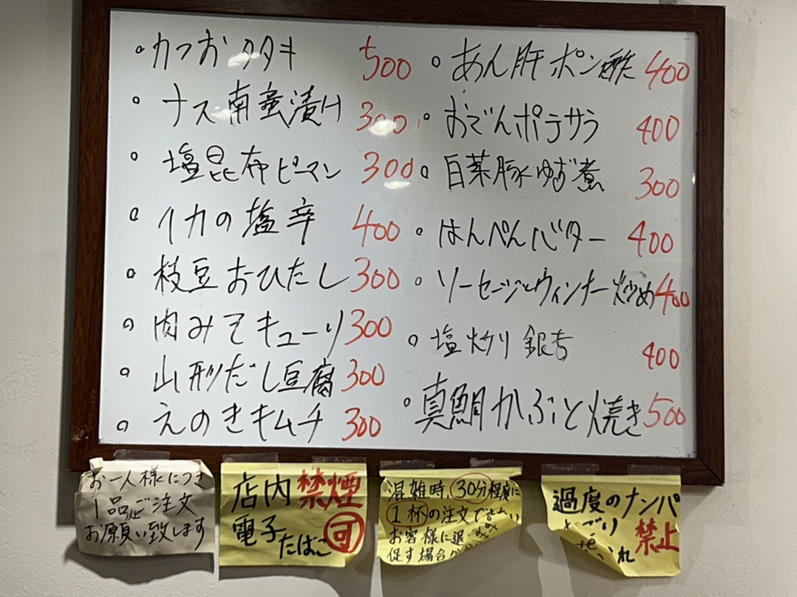 ・カツおタタキ 500
・ナス南蛮漬け 300
・塩昆布ピーマン 300
・イカの塩辛 400
・枝豆おひたし 300
・肉みそキューリ 300
・山形だし豆腐 300
・えのきキムチ 300
・あん肝ポン酢 400
・おでんポテサラ 400
・白菜豚ゆず煮 300
・はんぺんバター 400
・ソーセージとウィンナー炒め 400
・塩炒り銀杏 400
・真鯛かぶと焼き 500
お一人様につき
1品ご注文
お願い致します
店内禁煙
電子たばこ可
混雑時、30分程度に
1杯の注文で
お客様に退
促す場合が
過度のナンパ
禁止